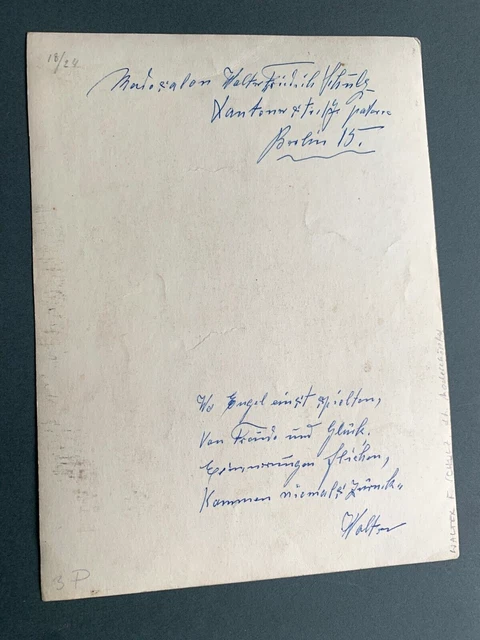 18/24
Modesalon Walter Friedrich Schulz
Berlin 15.
Wo Engel einst spielten,
Von Freude und Glück.
Erinnerungen fliehen,
Kommen niemals zurück.
Walter
3 P
WALTER F. SCHULZ